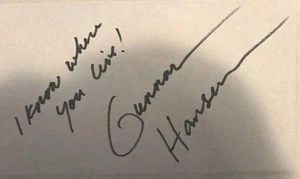 I know where
you live!
Gunnar
Hansen